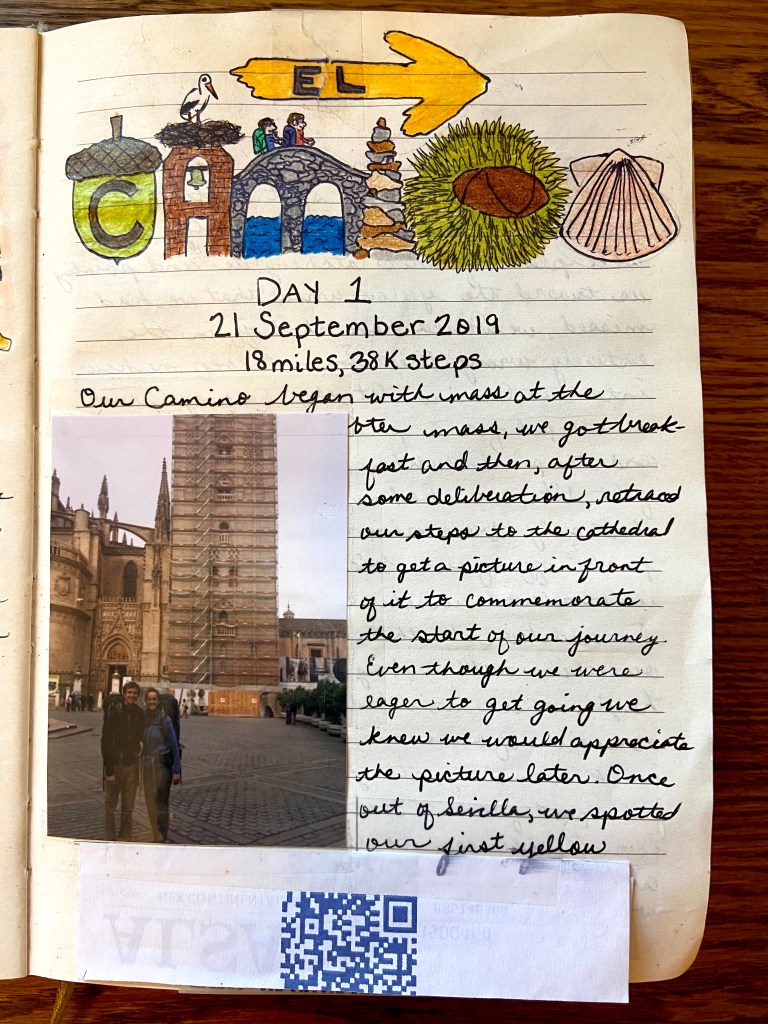 EL
CAMINO
DAY 1
21 September 2019
18 miles, 38K steps
Our Camino began with mass at the
fter mass, we got break-
fast and then, after
some deliberation, retraced
our steps to the cathedral
to get a picture in front
of it to commemorate
the start of our journey.
Even though we were
eager to get going we
knew we would appreciate
the picture later. Once
out of Sevilla, we spotted
our first yellow
NEX CONTINENTAL
ALSA